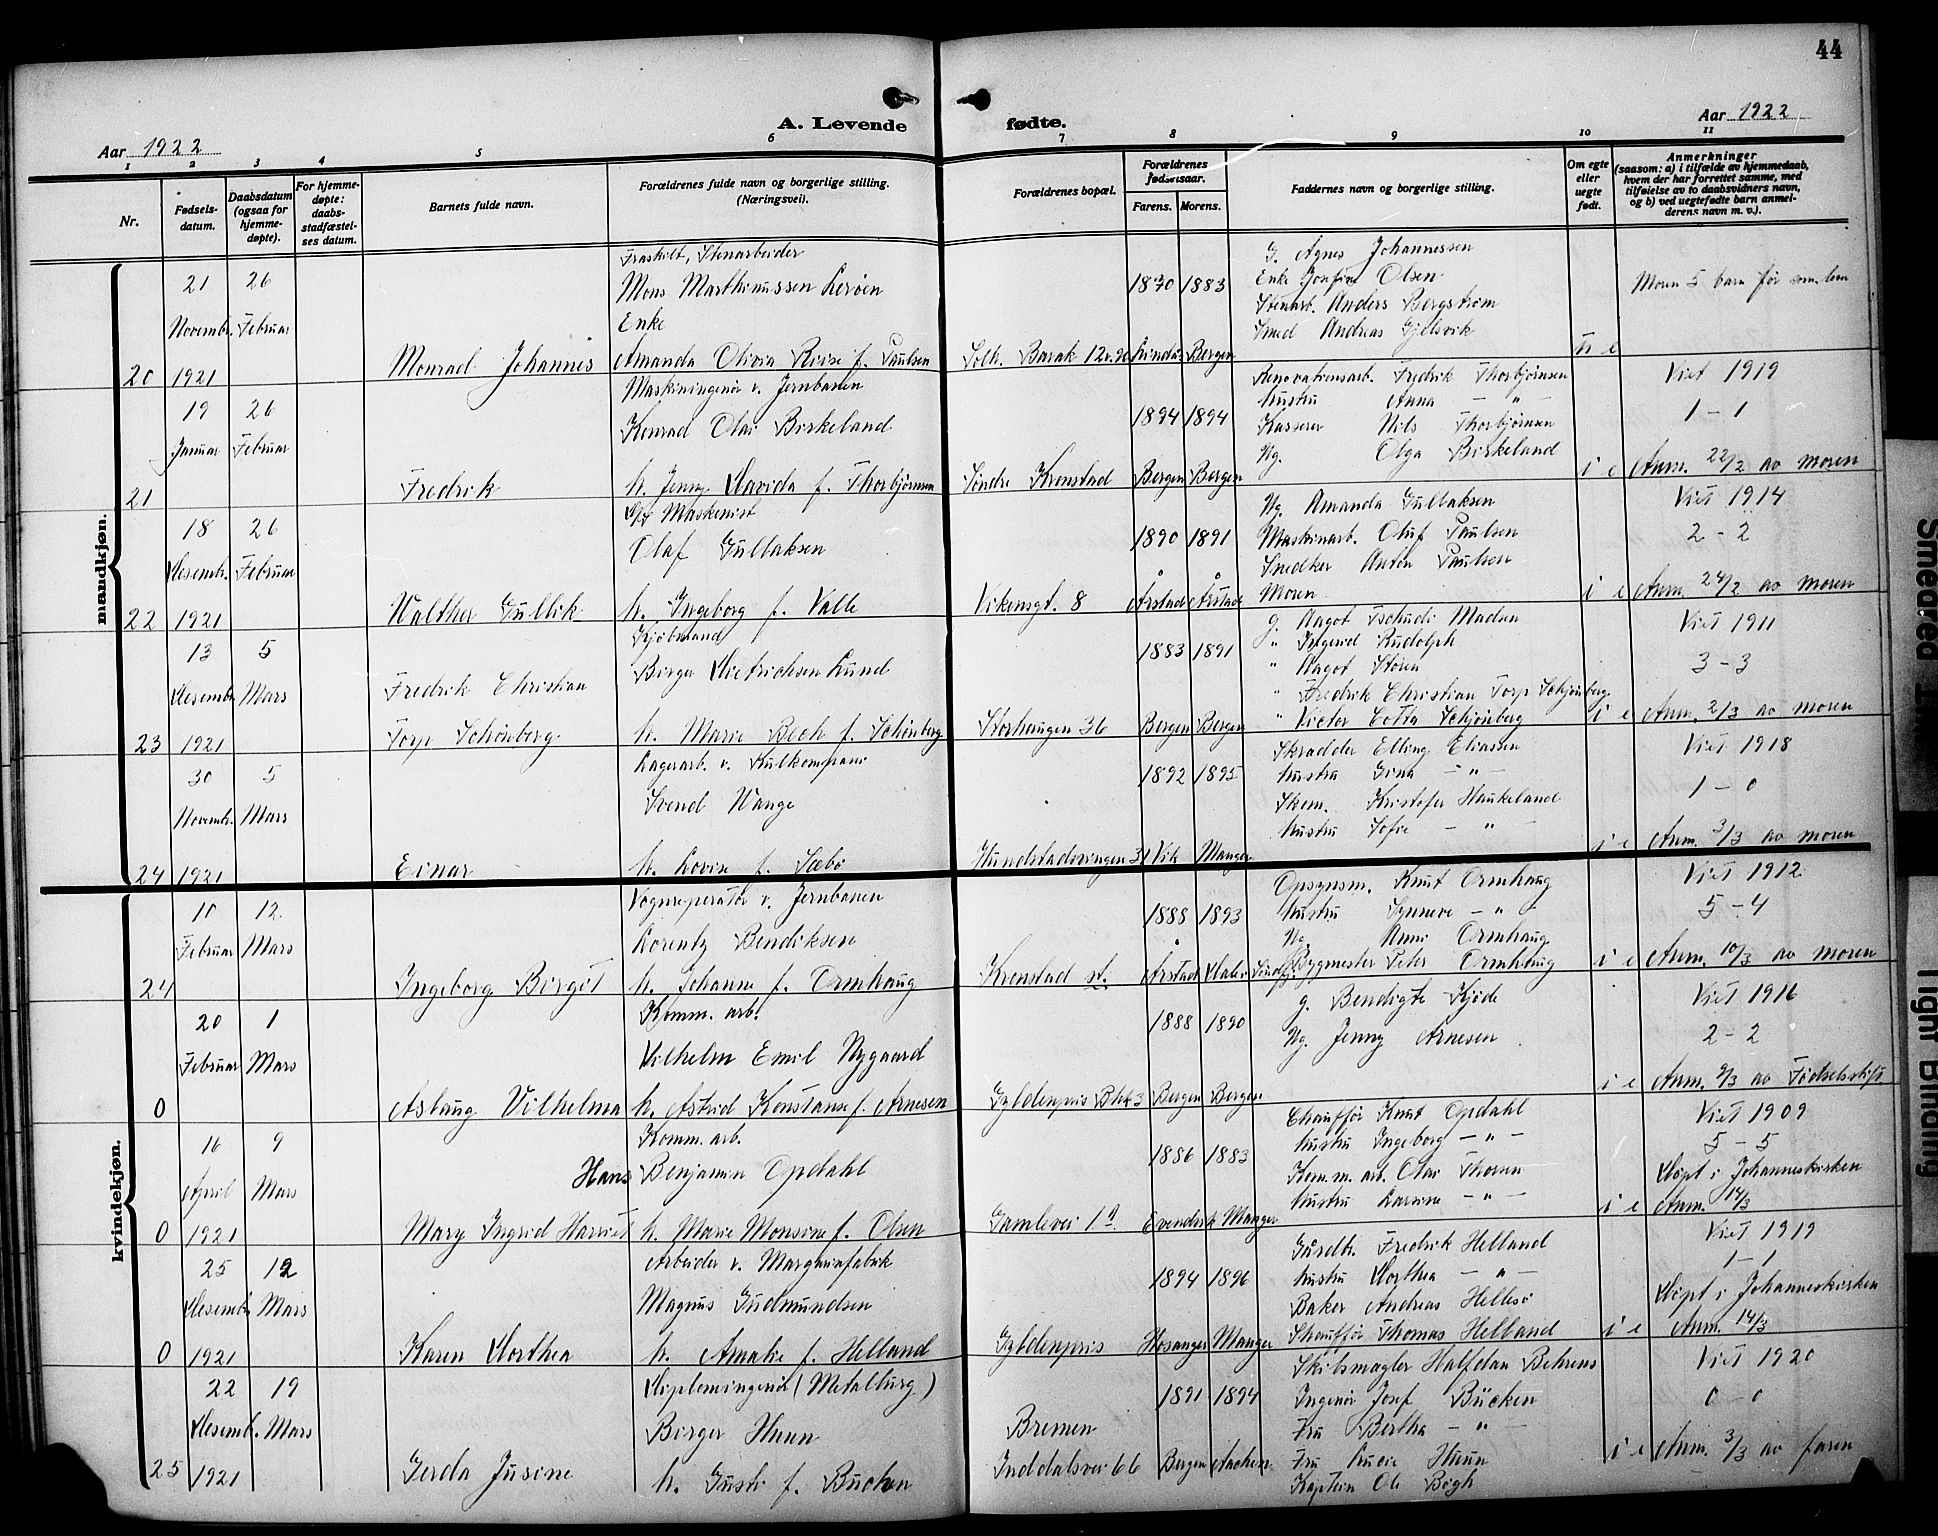 44
A. Levende fødte.
Aar 1922
Aar 1922
1 2 3 4 5 6 7 8 9 10 11
Nr.
Fødsels-
datum.
Daabsdatum
(ogsaa for
hjemme-
døpte).
For hjemme-
døpte:
daabs-
stadfæstel-
ses datum.
Barnets fulde navn.
Forældrenes fulde navn og borgerlige stilling.
(Næringsvei).
Forældrenes bopæl.
Forældrenes
fødselsaar.
Farens. Morens.
Faddernes navn og borgerlige stilling.
Om egte
eller
uegte
født.
Anmerkninger
(saasom: a) i tilfælde av hjemmedaab,
hvem der har forrettet samme, med
tilføielse av to daabsvidners navn,
og b) ved uegtefødte barn anmel-
derens navn m. v.).
mandkjøn.
Fraskilt, Stenarbeider
21 26 Mons Marthinussen Lerøen 1870 1883
Novembr. Februar Enke
20 1921 Monrad Johannes Amanda Olivia Riise f. Paulsen Solh. Barak 12 Lindås Bergen u e
G. Agnes Johannessen
Enke Josefine Olsen
Stenarb. Anders Bergstrøm
Smed Andreas Gjelsvik
Moren 5 barn før
Maskiningeniør v. Jernbanen
19 26 Konrad Olai Birkeland 1894 1894
Januar Februar
21 Fredrik h. Jenny Davida f. Thorbjørnsen Søndre Kronstad Bergen Bergen i e
Renovationsarb. Fredrik Thorbjørnsen
hustru Anna - " -
Kasserer Nils Thorbjørnsen
Ug. Olga Birkeland
Viet 1919
1 - 1
Anm. 22/2 av moren
Maskinist
18 26 Olaf Gullaksen 1890 1891
Desembr. Februar
22 1921 Walther Gullik h. Ingeborg f. Valle Vikensgt. 8 Årstad Årstad i e
Ug. Amanda Gullaksen
Maskinarb. Oluf Paulsen
Snedker Anton Paulsen
Moren
Viet 1914
2 - 2
Anm. 24/2 av moren
Kjøbmand
13 5 Birger Dietrichsen Lund 1883 1891
Desembr Mars Fredrik Christian
23 1921 Torp Schönberg h. Marie Bech f. Schönberg Storhaugen 36 Bergen Bergen i e
g. Aagot Tschudi Madsen
" Rudolph
" Aagot Støren
" Fredrik Christian Torp Schjönberg
" Victor Cotta Schjönberg
Viet 1911
3 - 3
Anm. 2/3 av moren
Lagerarb. v. Kulkompani
30 5 Svend Wange 1892 1895
Novembr. Mars
24 1921 Einar h. Lovise f. Sæbø Hundstadsvingen Vik Manger i e
Skrædder Elling Eliassen
hustru Gina - " -
Skom. Kristofer Haukeland
hustru Sofie - " -
Viet 1918
1 - 0
Anm. 3/3 av moren
kvindekjøn.
Vognreperatør v. Jernbanen
10 12 Lorentz Bendiksen 1888 1893
Februar Mars
24 Ingeborg Birgit h. Johanne f. Ormhaug Kronstad st. Årstad Dale i Søndfj. i e
Opsynsm. Knut Ormhaug
hustru Synneve - " -
Ug. Anni Ormhaug
Bygmester Peter Ormhaug
Viet 1912
5 - 4
Anm. 10/3 av moren
Komm. arb.
20 1 Vilhelm Emil Nygaard 1888 1890
Februar Mars
0 Aslaug Vilhelma h. Astrid Konstanse f. Arnesen Gyldenpris Blk 3 Bergen Bergen i e
g. Bendigte Kjøde
Ug. Jenny Arnesen
Viet 1916
2 - 2
Anm. 9/3 av Fødselsstift
Komm. arb.
16 9 Hans Benjamin Opdahl 1886 1883
April Mars
0 1921 Mary Ingrid Harriet h. Marie Monsine f. Olsen Gamlevei 1 Evendvik Manger i e
Chauffør Knut Opdahl
hustru Ingeborg - " -
Komm. arb. Olai Thorsen
hustru Larsine - " -
Viet 1909
5 - 5
Døpt i Johanneskirken
Anm. 14/3
Arbeider v. Margarinfabrik
25 12 Magnus Gudmundsen 1894 1896
Desembr Mars
0 1921 Karen Dorthea h. Amalie f. Helland Gyldenpris Hosanger Manger i e
Gårdbr. Fredrik Helland
hustru Dorthea - " -
Baker Andreas Hellesø
Chauffør Thomas Helland
Viet 1919
1 - 1
Døpt i Johanneskirken
Anm. 14/3
Diplomingeniør (Metallurg)
22 19 Birger Huun Bremen 1891 1894
Desemb. Mars
25 1921 Gerda Jusine h. Gusti f. Bücken Inddalsvei 66 Bergen Aachen i e
Skibsmægler Halfdan Behrens
Ingeniør Josef Bücken
Fru Bertha - " -
Fru Lucie Huun
Kaptein Ole Bøgh
Viet 1920
0 - 0
Anm. 3/3 av faren
Tight Binding